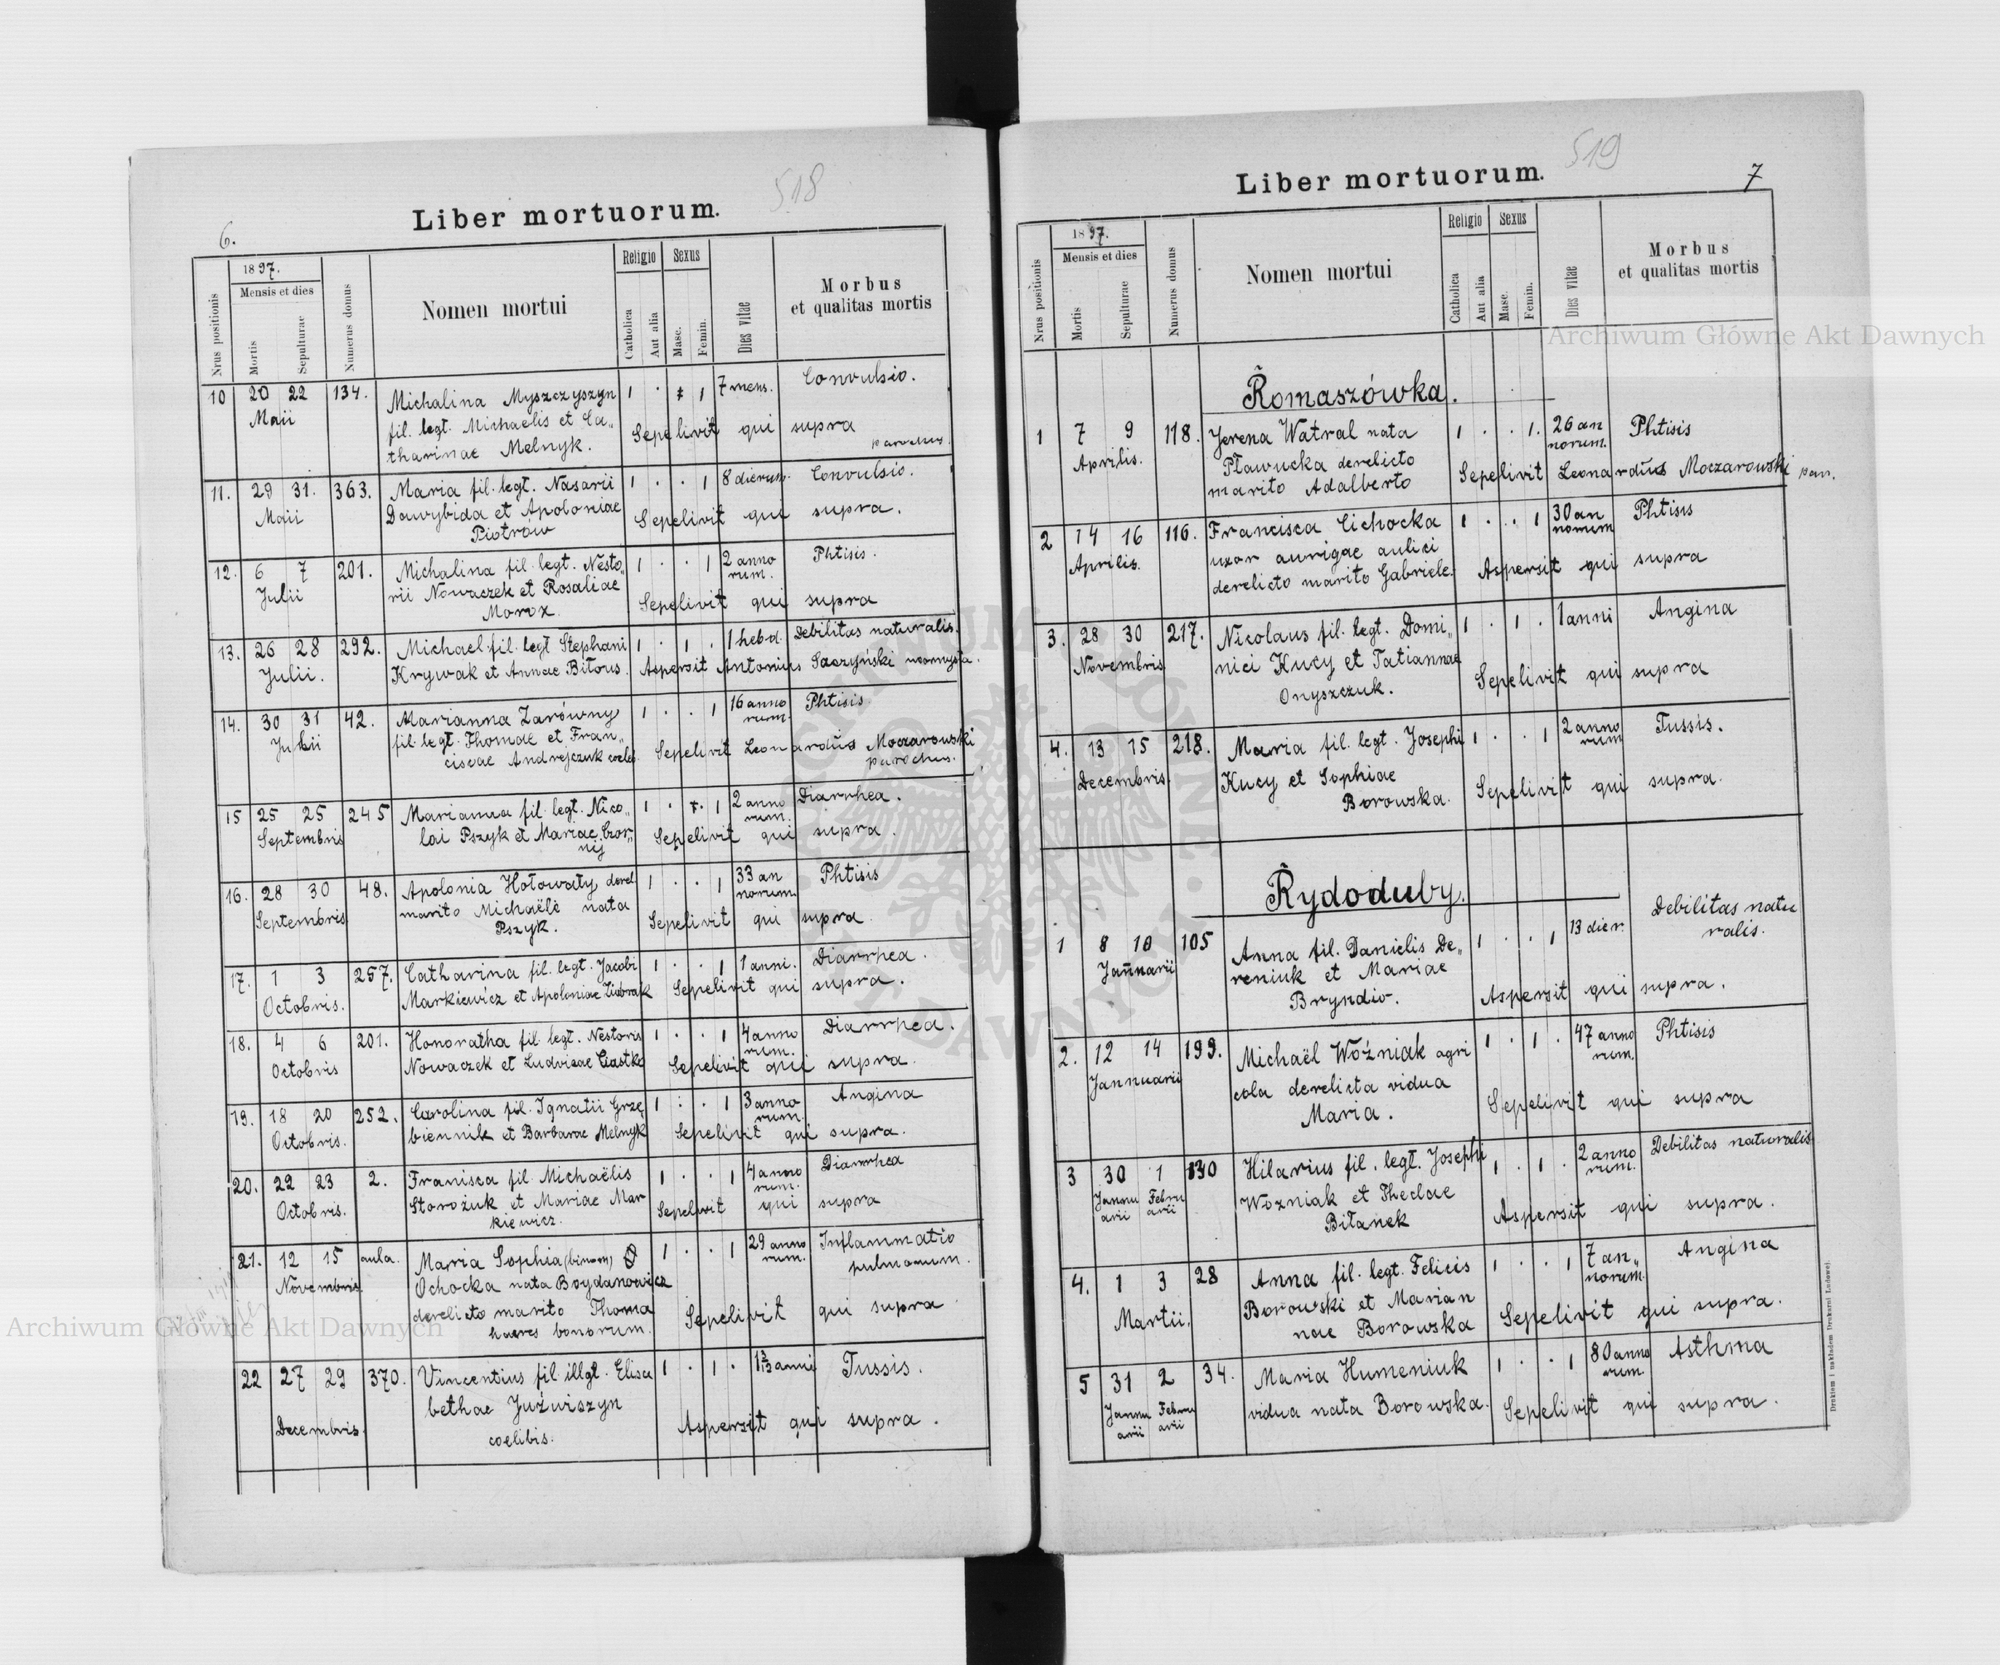 518
6.
Liber mortuorum.
Nrus positionis
1897.
Mensis et dies
Mortis
Sepulturae
Numerus domus
Nomen mortui
Religio
Catholica
Aut alia
Sexus
Masc.
Femin.
Dies vitae
Morbus
et qualitas mortis
10 20 22 134. Michalina Myszczyszyn 1 . 1 7 mens. Convulsio.
Maii fil. legt. Michaelis et Ca„ Sepelivit qui supra
tharinae Melnyk. parochus.
11. 29 31. 363. Maria fil. legt. Nasarii 1 . . 1 8 dierum. Convulsio.
Maii Dawybida et Apoloniae Sepelivit qui supra.
Piotrów
12. 6 7 201. Michalina fil. legt. Nesto„ 1 . . 1 2 anno Phtisis.
rum.
Julii rii Nowaczek et Rosaliae Sepelivit qui supra
Moroz.
13. 26 28 292. Michael fil. legt Stephani 1 . 1 . 1 hebd. Debilitas naturalis.
Julii. Krywak et Annae Bitous. Aspersit Antonius Saczyński
14. 30 31 42. Marianna Zarówny 1 . . 1 16 anno Phtisis
rum.
Julii fil. legt. Thomae et Fran„ Sepelivit Leonardus Moczarowski
ciscae Andrejczuk coelebs. parochus.
15 25 25 245 Marianna fil. legt. Nico„ 1 . 1 2 anno Diarrhea.
rum.
Septembris lai Pszyk et Mariae Czor„ Sepelivit qui supra.
nij
16. 28 30 48. Apolonia Hołowaty derel 1 . . 1 33 an Phtisis
norum.
Septembris marito Michaële nata Sepelivit qui supra.
Pszyk.
17. 1 3 257. Catharina fil. legt. Jacobi 1 . . 1 1 anni. Diarrhea.
Octobris. Markiewicz et Apoloniae Ziobrak Sepelivit qui supra.
18. 4 6 201. Honoratha fil. legt. Nestoris 1 . . 1 4 anno Diarrhea.
rum.
Octobris Nowaczek et Ludvicae Ciastko Sepelivit qui supra.
19. 18 20 252. Carolina fil. Ignatii Grze 1 . . 1 3 anno Angina
rum.
Octobris. biennik et Barbarae Melnyk Sepelivit qui supra.
20. 22 23 2. Franisca fil. Michaëlis 1 . . 1 4 anno Diarrhea
rum.
Octobris. Storożuk et Mariae Mar Sepelivit qui supra
kiewicz.
21. 12 15 aula. Maria Sophia (binom) 1 . . 1 29 anno Inflammatio
rum. pulmonum.
Novembris. Ochocka nata Bogdanowicz
derelicto marito Thoma Sepelivit qui supra
haeres bonorum.
22 27 29 370. Vincentius fil. illgt. Elisa 1 . 1 . Tussis.
bethae Juźwiszyn
Decembris. coelibis. Aspersit qui supra.
519
7
Liber mortuorum.
Nrus positionis
1897.
Mensis et dies
Mortis
Sepulturae
Numerus domus
Nomen mortui
Religio
Catholica
Aut alia
Sexus
Masc.
Femin.
Dies vitae
Morbus
et qualitas mortis
Romaszówka.
1 7 9 118. Jerena Watral nata 1 . . 1. 26 an Phtisis
norum.
Aprilis. Pławucka derelicto Sepelivit Leonardus Moczarowski par.
marito Adalberto
2 14 16 116. Francisca Cichocka 1 . . 1 30 an Phtisis
norum
Aprilis. uxor aurigae aulici Aspersit qui supra
derelicto marito Gabriele.
3. 28 30 217. Nicolaus fil. legt. Domi„ 1 . 1 . 1 anni Angina
Novembris nici Kucy et Tatiannae Sepelivit qui supra
Onyszczuk.
4. 13 15 218. Maria fil. legt. Josephi 1 . . 1 2 anno Tussis.
rum
Decembris Kucy et Sophiae Sepelivit qui supra.
Borowska.
Rydoduby.
1 8 10 105 Anna fil. Danielis De„ 1 . . 1 13 dier. Debilitas natu
ralis.
Januarii reniuk et Mariae Aspersit qui supra.
Bryndio.
2. 12 14 199. Michaël Woźniak agri 1 . 1 . 47 anno Phtisis
rum.
Jannuarii cola derelicta vidua Sepelivit qui supra
Maria.
3 30 1 130 Hilarius fil. legt. Josephi 1 . 1 . 2 anno Debilitas naturalis
rum.
Jannu Febru Wozniak et Theclae Aspersit qui supra.
arii arii Biłanek
4. 1 3 28 Anna fil. legt. Felicis 1 . . 1 7 an„ Angina
norum.
Martii. Borowski et Marian Sepelivit qui supra.
nae Borowska
5 31 2 34. Maria Humeniuk 1 . . 1 80 anno Asthma
rum.
Jannu Febru vidua nata Borowska. Sepelivit qui supra.
arii arii
Drukiem i nakładem Drukarni Ludowej.
Archiwum Główne Akt Dawnych
Archiwum Główne Akt Dawnych
ARCHIWUM GŁÓWNE AKT DAWNYCH